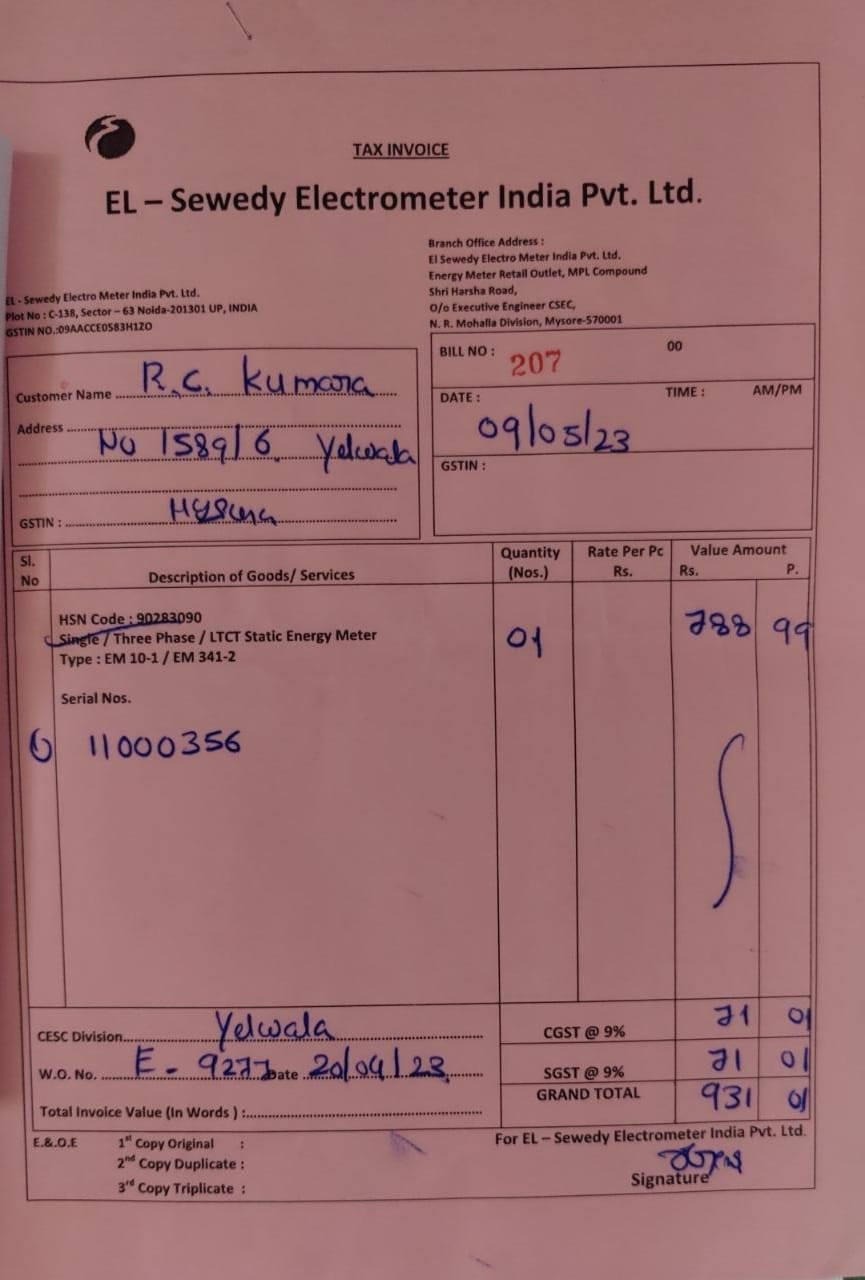 TAX INVOICE
EL – Sewedy Electrometer India Pvt. Ltd.
EL - Sewedy Electro Meter India Pvt. Ltd.
Plot No : C-138, Sector – 63 Noida-201301 UP, INDIA
GSTIN NO.:09AACCE0583H1ZO
Branch Office Address :
El Sewedy Electro Meter India Pvt. Ltd.
Energy Meter Retail Outlet, MPL Compound
Shri Harsha Road,
O/o Executive Engineer CSEC,
N. R. Mohalla Division, Mysore-570001
Customer Name R.C. Kumara
Address
No 1589/6 Yelwala
GSTIN : Mysuru
BILL NO : 207 00
DATE : TIME : AM/PM
09/05/23
GSTIN :
Sl. No Description of Goods/ Services Quantity (Nos.) Rate Per Pc Rs. Value Amount Rs. P.
HSN Code : 90283090
Single / Three Phase / LTCT Static Energy Meter 01 788 99
Type : EM 10-1 / EM 341-2
Serial Nos.
11000356
CESC Division Yelwala
W.O. No. E - 9277 Date 20/04/23
Total Invoice Value (In Words ) :
CGST @ 9% 71 01
SGST @ 9% 71 01
GRAND TOTAL 931 01
E.&.O.E 1st Copy Original :
2nd Copy Duplicate :
3rd Copy Triplicate :
For EL – Sewedy Electrometer India Pvt. Ltd.
Signature